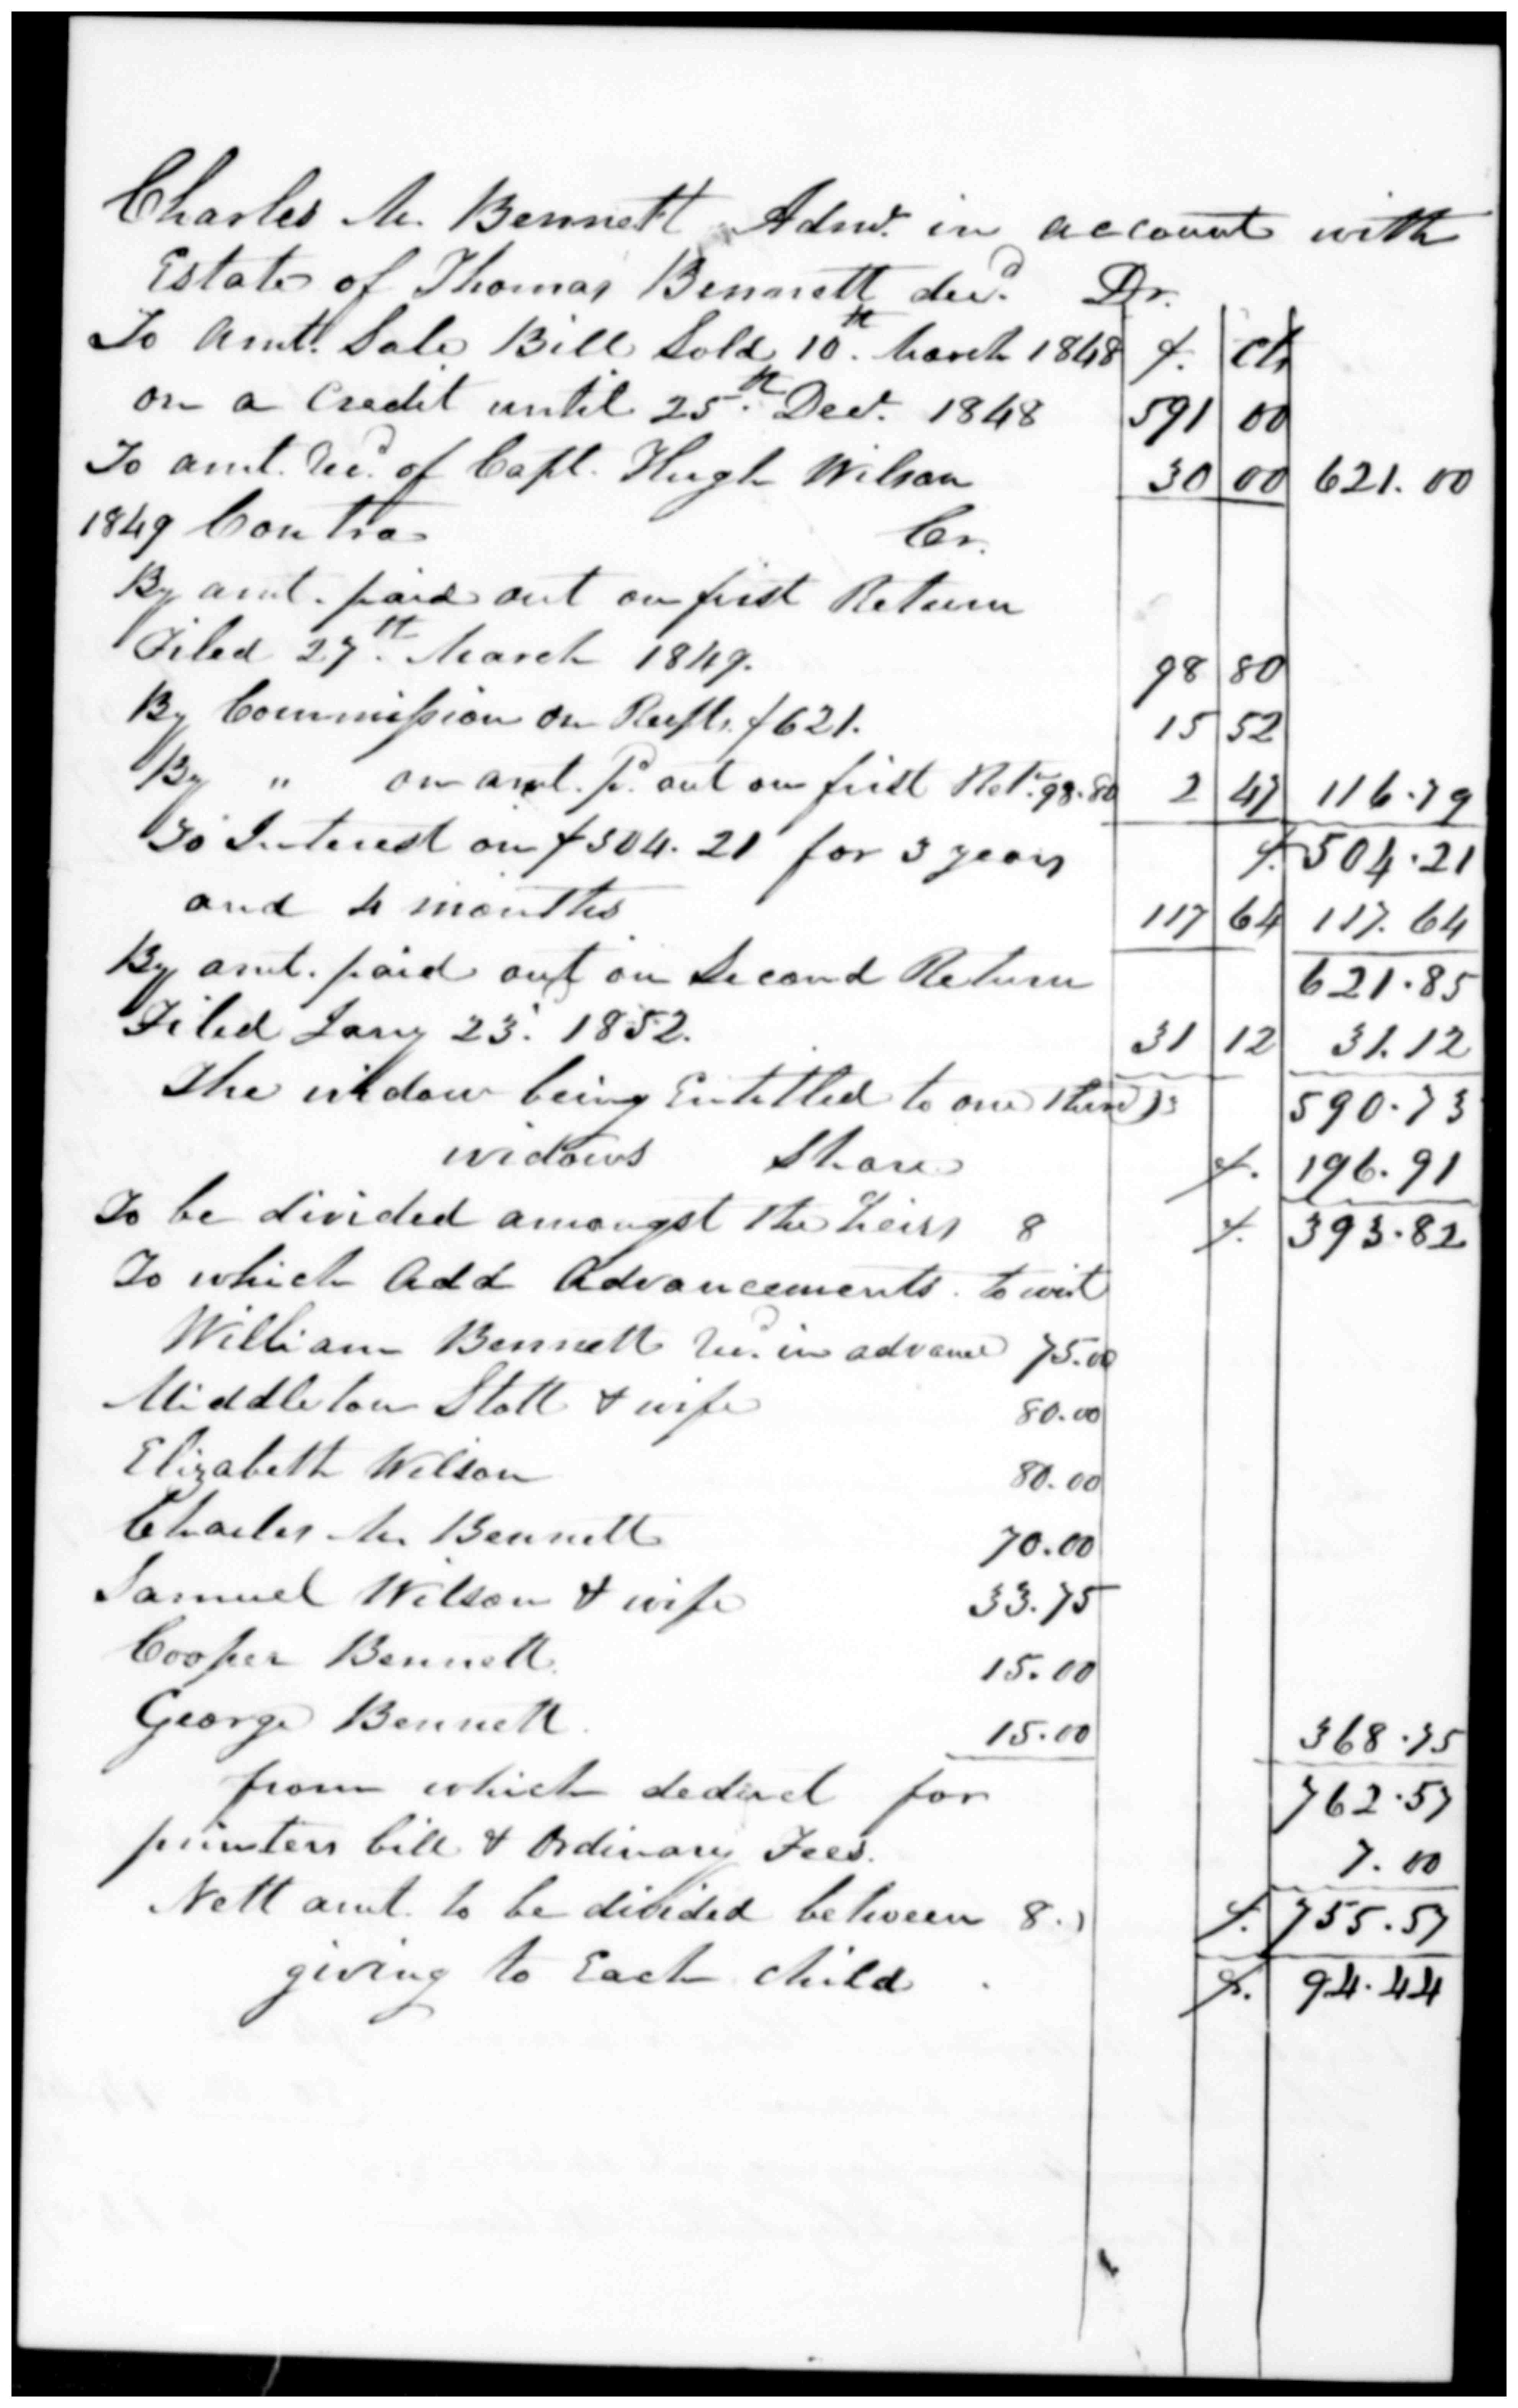 Charles M. Bennett Admr. in account with
Estate of Thomas Bennett decd. Dr.
To Amt. Sale Bill Sold 10th March 1848 $. cts
on a Credit until 25th Decr. 1848 591 00
To amt. Recd. of Capt. Hugh Wilson 30 00 621.00
1849 Contra Cr.
By amt. paid out on first Return
Filed 27th March 1849. 98 80
By Commission on Recpts. $621. 15 52
By " on amt. pd. out on first Retn. 98.80 2 47 116.79
To Interest on $504.21 for 3 years $. 504.21
and 4 months 117 64 117.64
By amt. paid out on Second Return 621.85
Filed Jany 23. 1852. 31 12 31.12
The widow being Entitled to one third 590.73
widows Share $. 196.91
To be divided amongst the heirs 8 $. 393.82
To which Add Advancements. to wit
William Bennett Recd. in advance 75.00
Middleton Stott & wife 80.00
Elizabeth Wilson 80.00
Charles M. Bennett 70.00
Samuel Wilson & wife 33.75
Cooper Bennett. 15.00
George Bennett. 15.00 368.75
from which deduct for 762.57
printers bill & Ordinary Fees. 7.00
Nett amt. to be divided between 8. $. 755.57
giving to Each child. $. 94.44